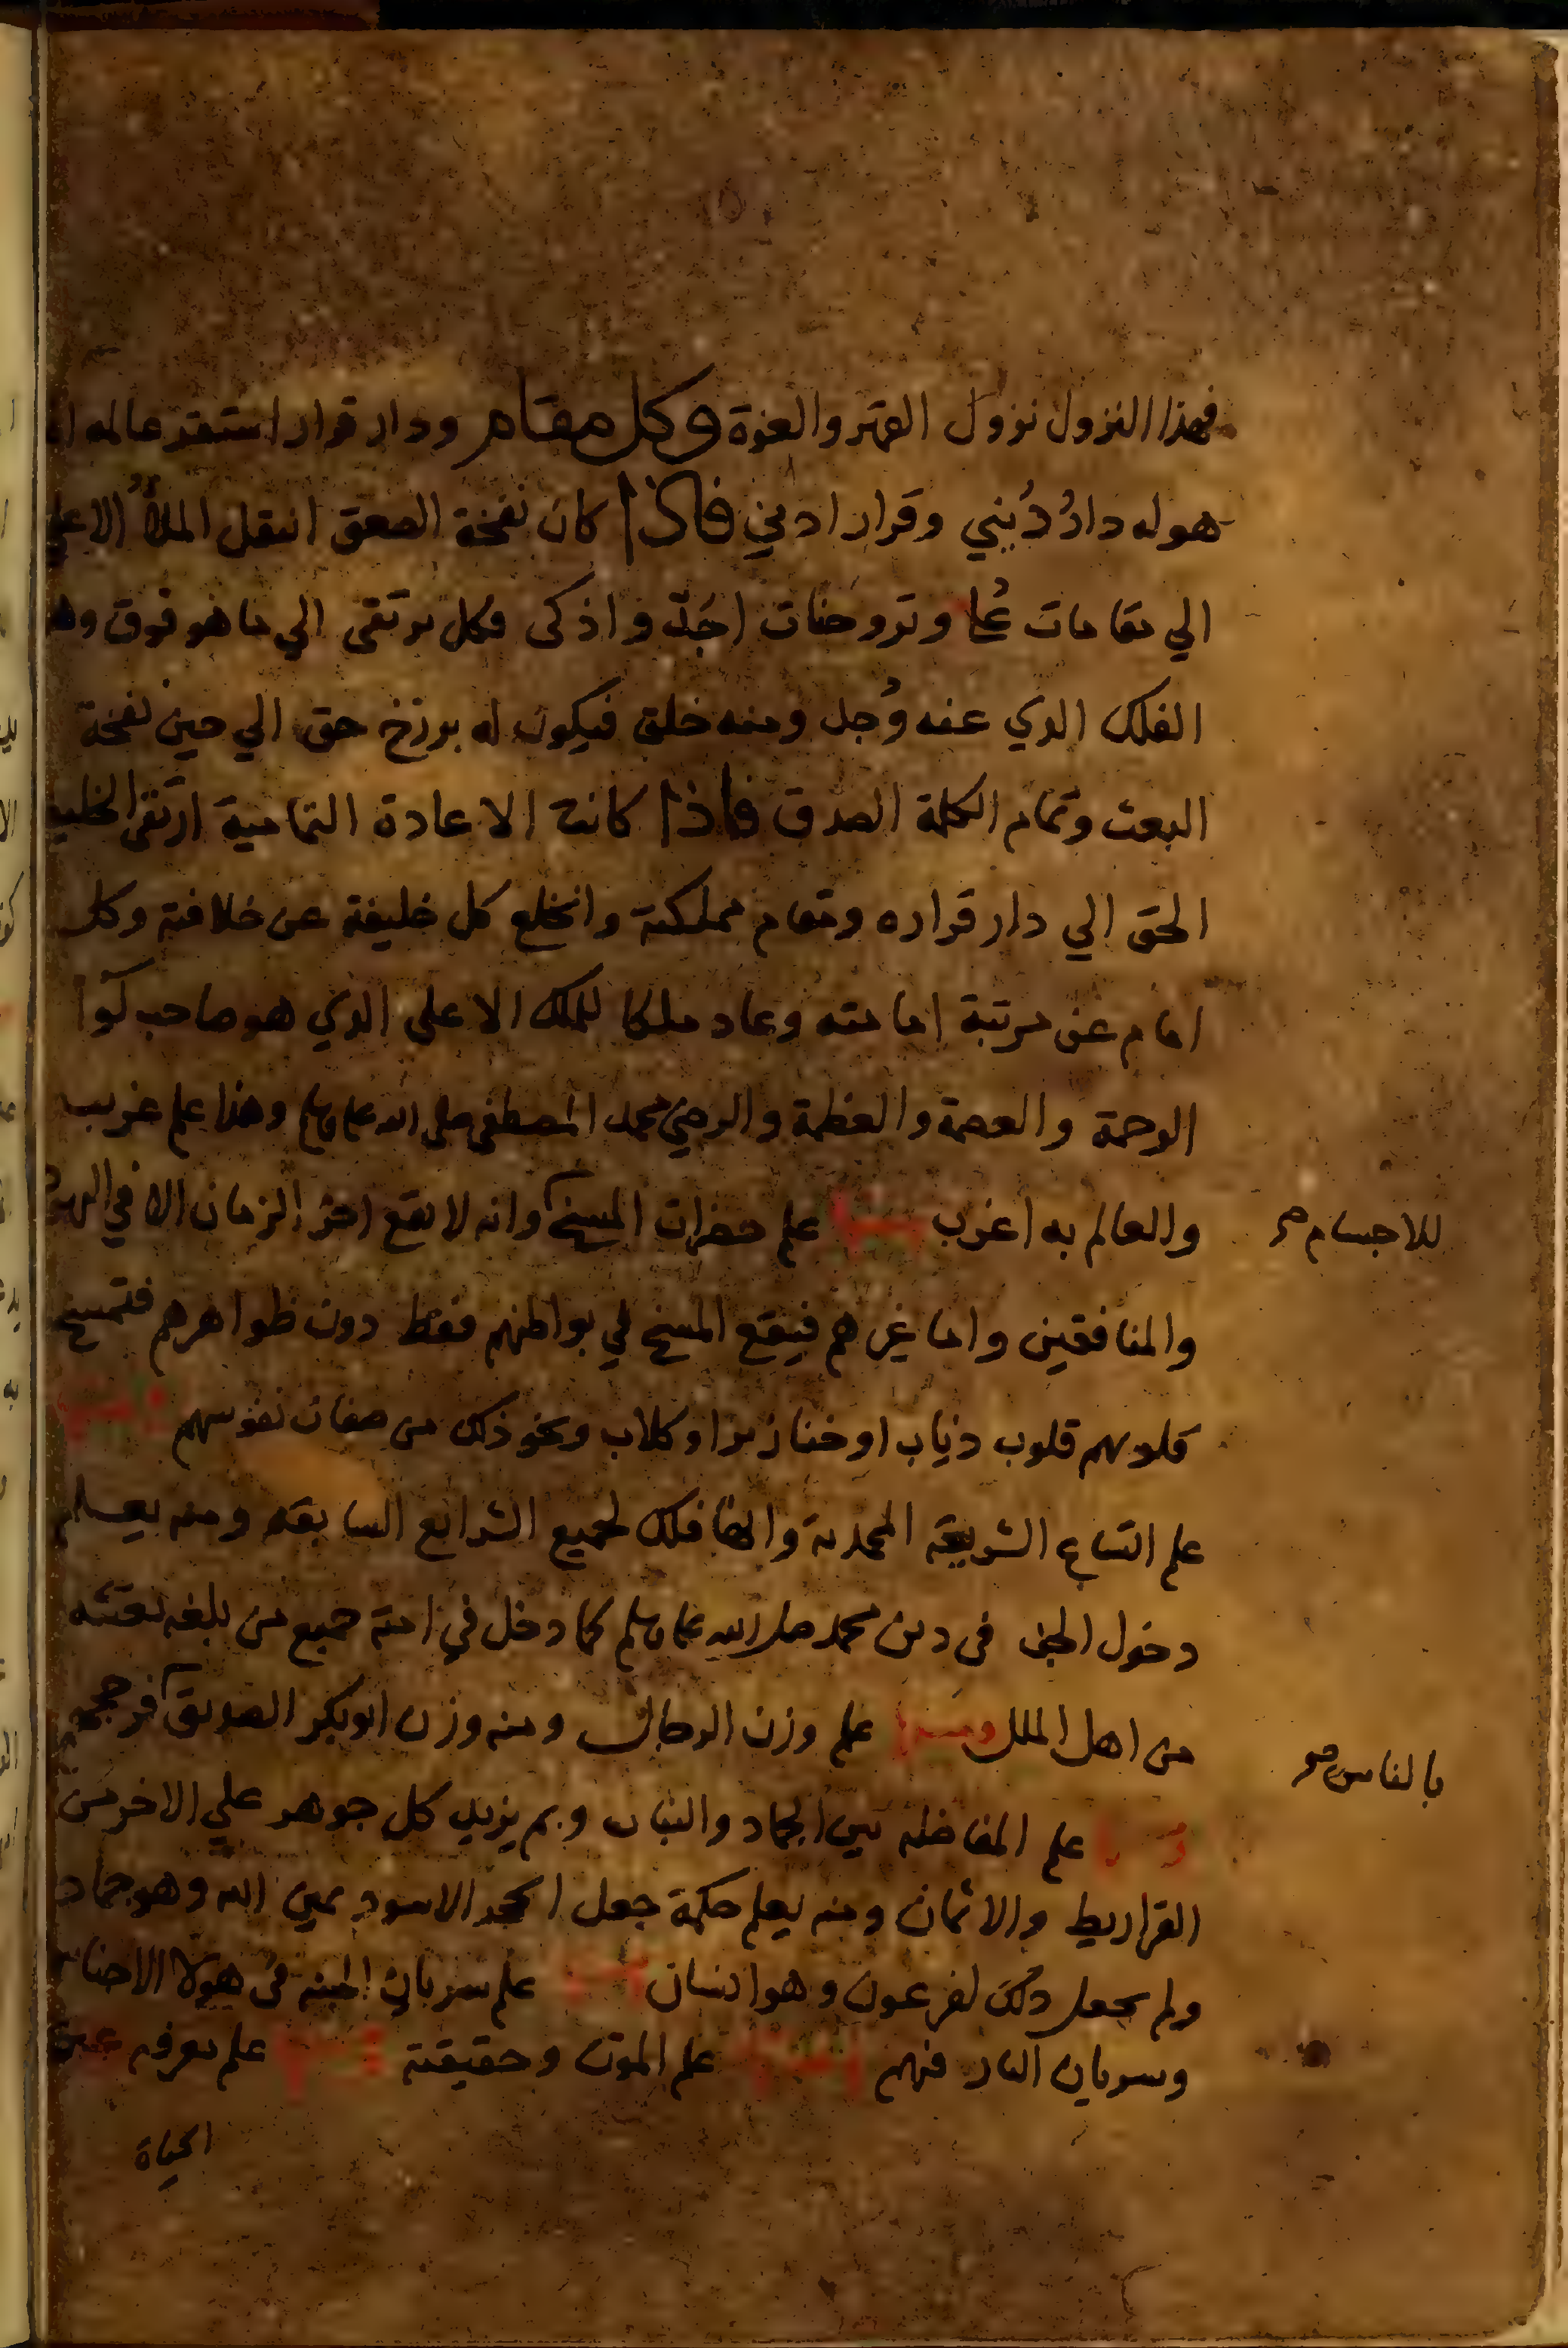 فهذا النزول نزول القهر والعزة وكل مقام ودار قرار استقر عالمه
هو له دار دُنيي وقرار ادني فاذا كان نفخة الصعق انتقل الملأ الاعلي
الي مقامات عُلا وتروحنات اجَلّ واذكى فكل يرتقى الي ما هو فوق
الفلك الدي عنه وُجد ومنه خلق فيكون له برزخ حق الي حين نفخة
البعث وتمام الكلمة الصدق فاذا كانت الاعادة التمامية ارتقى
الحق الي دار قراره ومقام مملكته وانخلع كل خليفة عن خلافته وكل
امام عن مرتبة امامته وعاد ملكا للملك الاعلى الدي هو صاحب لوآ
الرحمة والعصمة والعظمة والرضي محمد المصطفى صلى الله عليه وسلم وهذا علم غريب
والعالم به اغرب ومنها علم حضرات المسخ وانه لا يقع اخر الزمان الا في
للاجسام صح
والمنافقين واما غيرهم فيقع المسخ في بواطنهم فقط دون ظواهرهم فتمسخ
قلوبهم قلوب ذياب او خنازير او كلاب ونحو ذلك من صفات نفوسهم ومنها
علم اتساع الشريعة المحمدية وانها فلك لجميع الشرايع السابقه ومنه يعلم
دخول الجن فى دين محمد صلى الله عليه وسلم كما دخل في امته جميع من بلغه بعثته
من اهل الملل ومنها علم وزن الرجال ومنه وزن ابو بكر الصديق فرجحهم
بالناس صح
ومنها علم المفاضله بين الجماد والنبات وبم يزيد كل جوهر علي الاخر من
القراريط والاثمان ومنه يعلم حكمة جعل الحجر الاسود يمين الله وهو جماد
ولم يجعل ذلك لفرعون وهو انسان ومنها علم سريان الجنه فى هولا الاجناس
وسريان النار فيهم ومنها علم الموت وحقيقته ومنها علم معرفه عين
الحياة